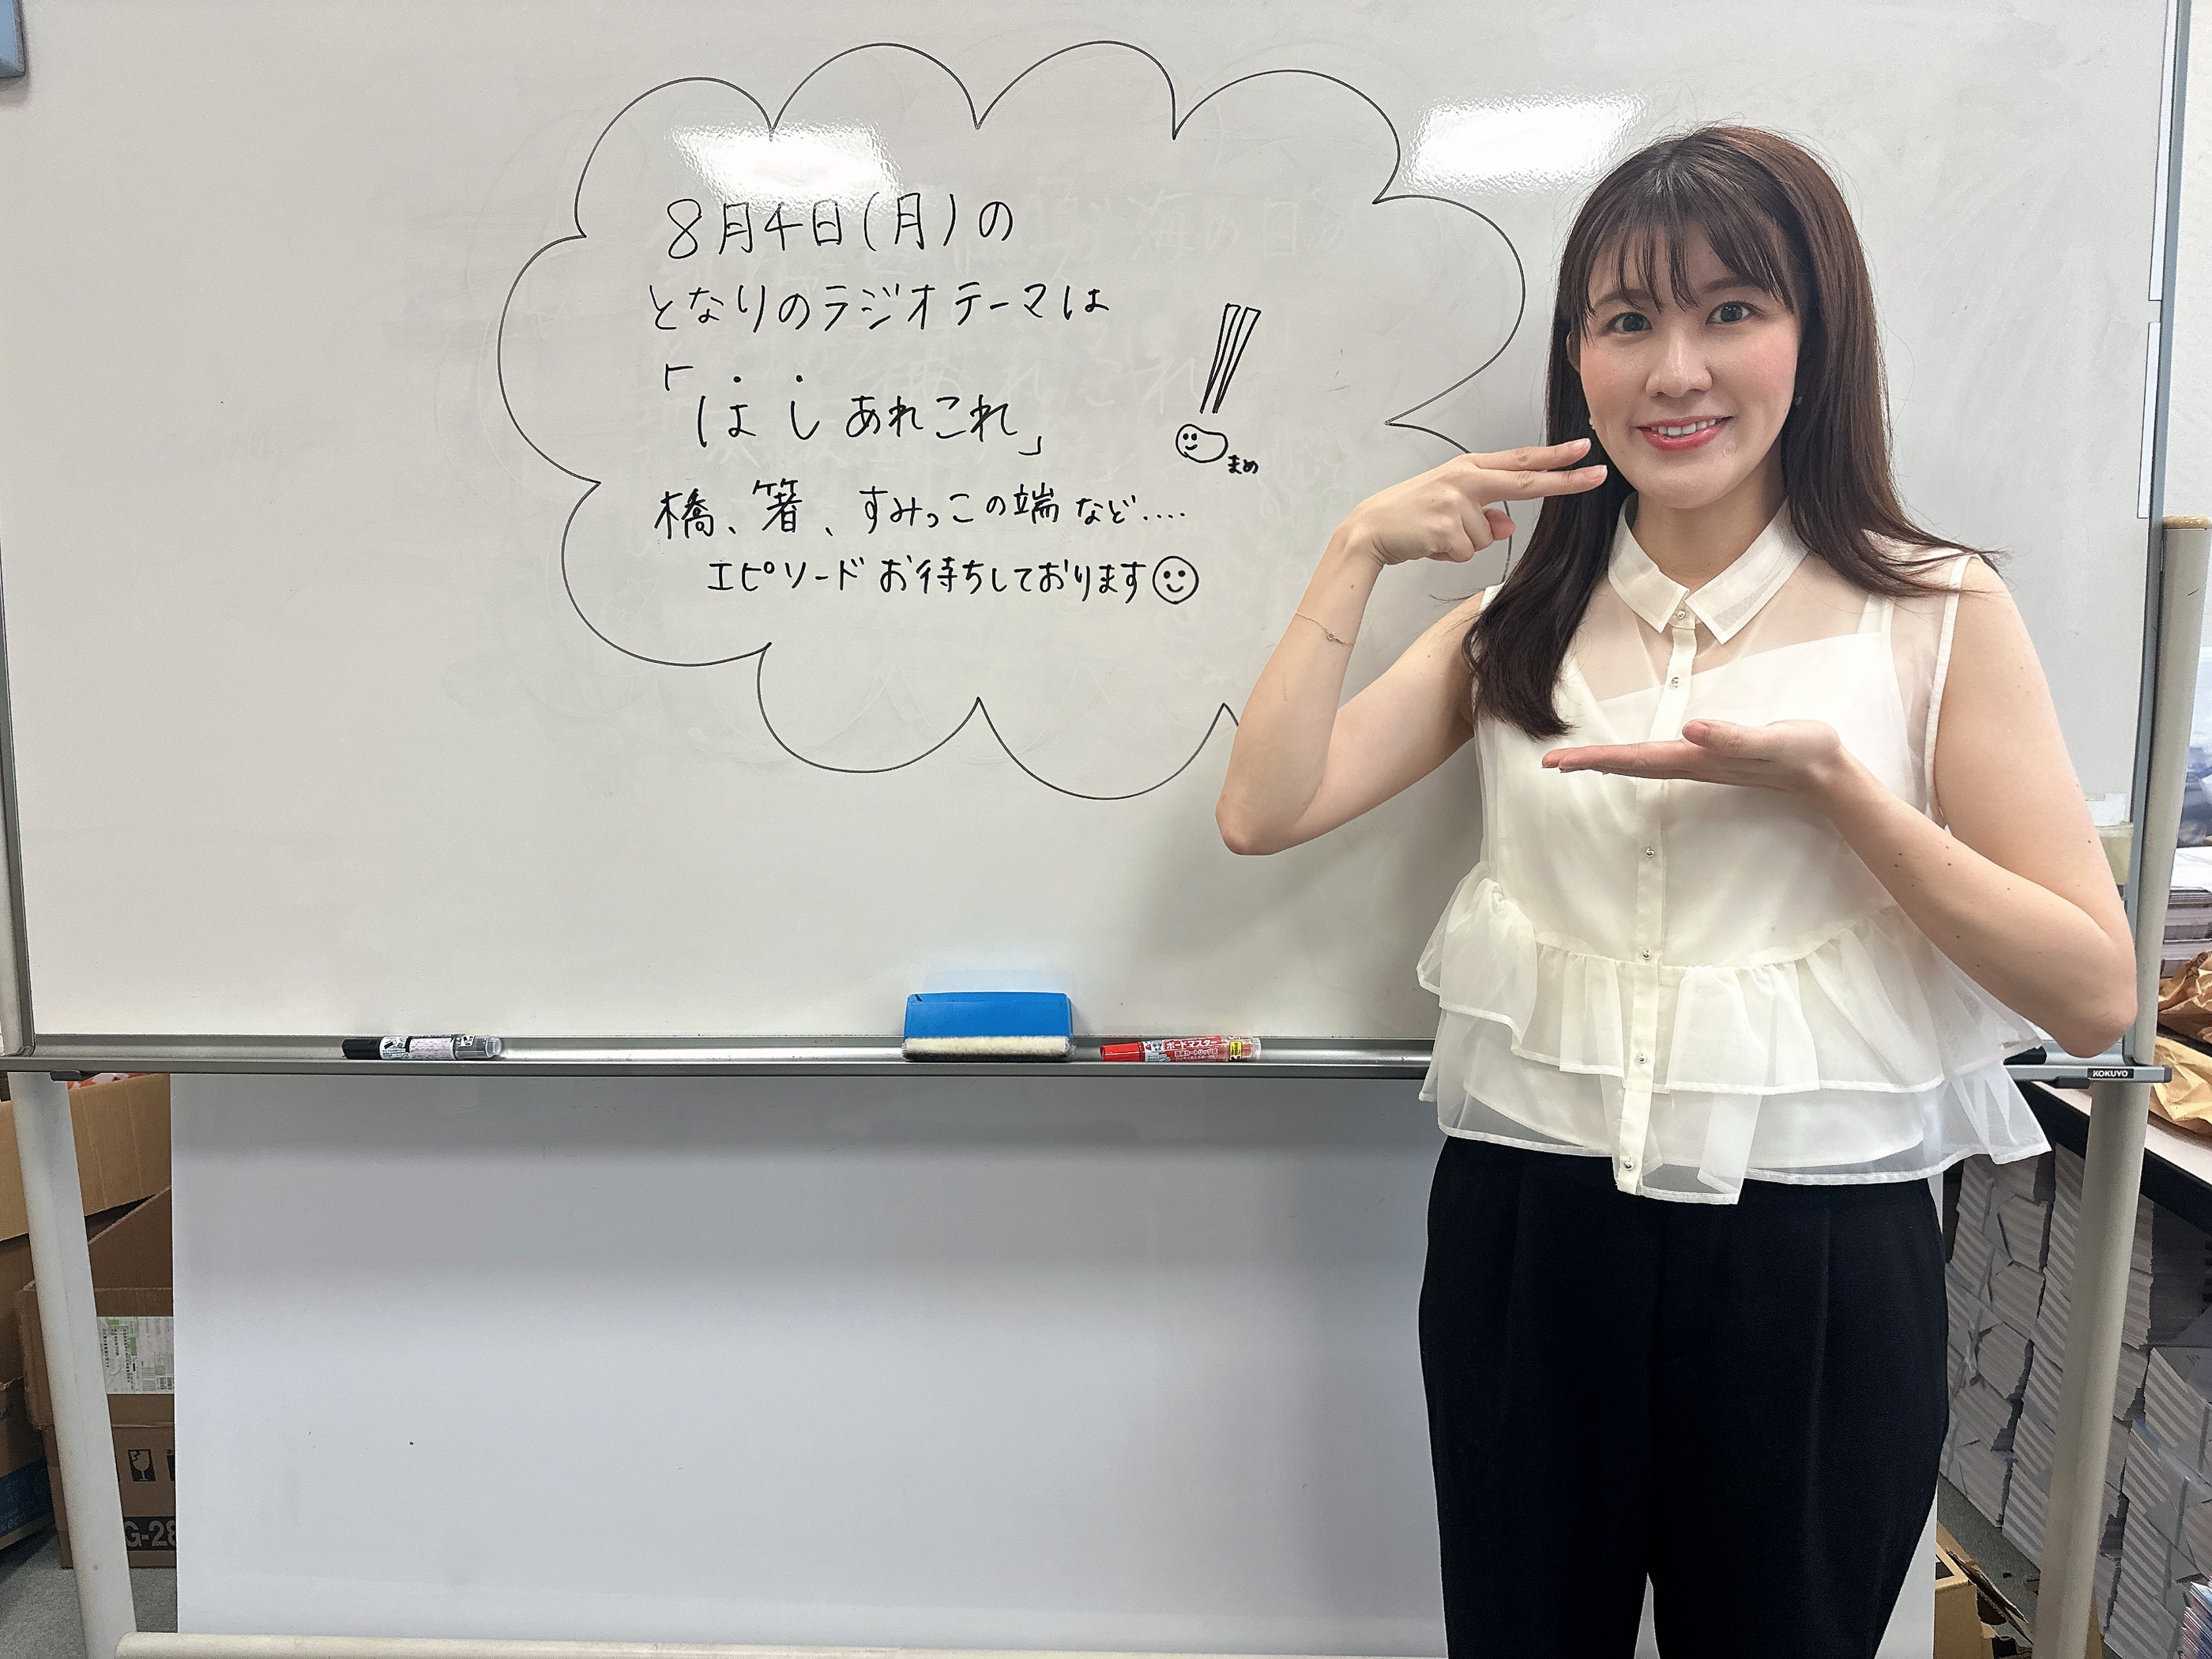 8月4日(月)の
となりのラジオテーマは
「はしあれこれ」
まめ
橋、箸、すみっこの端など....
エピソードお待ちしております
ボードマスター
KOKUYO
G-28